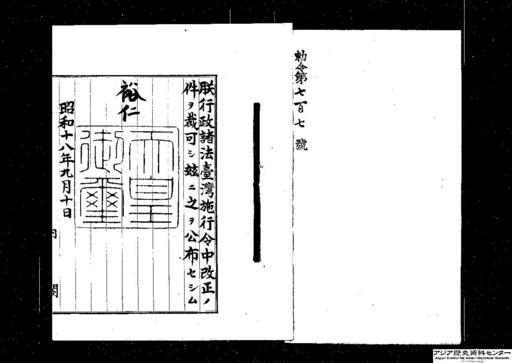 勅令第七百七號
朕行政諸法臺灣施行令中改正ノ
件ヲ裁可シ玆ニ之ヲ公布セシム
裕仁
天皇御璽
昭和十八年九月十日
内閣
アジア歴史資料センター
Japan Center for Asian Historical Records